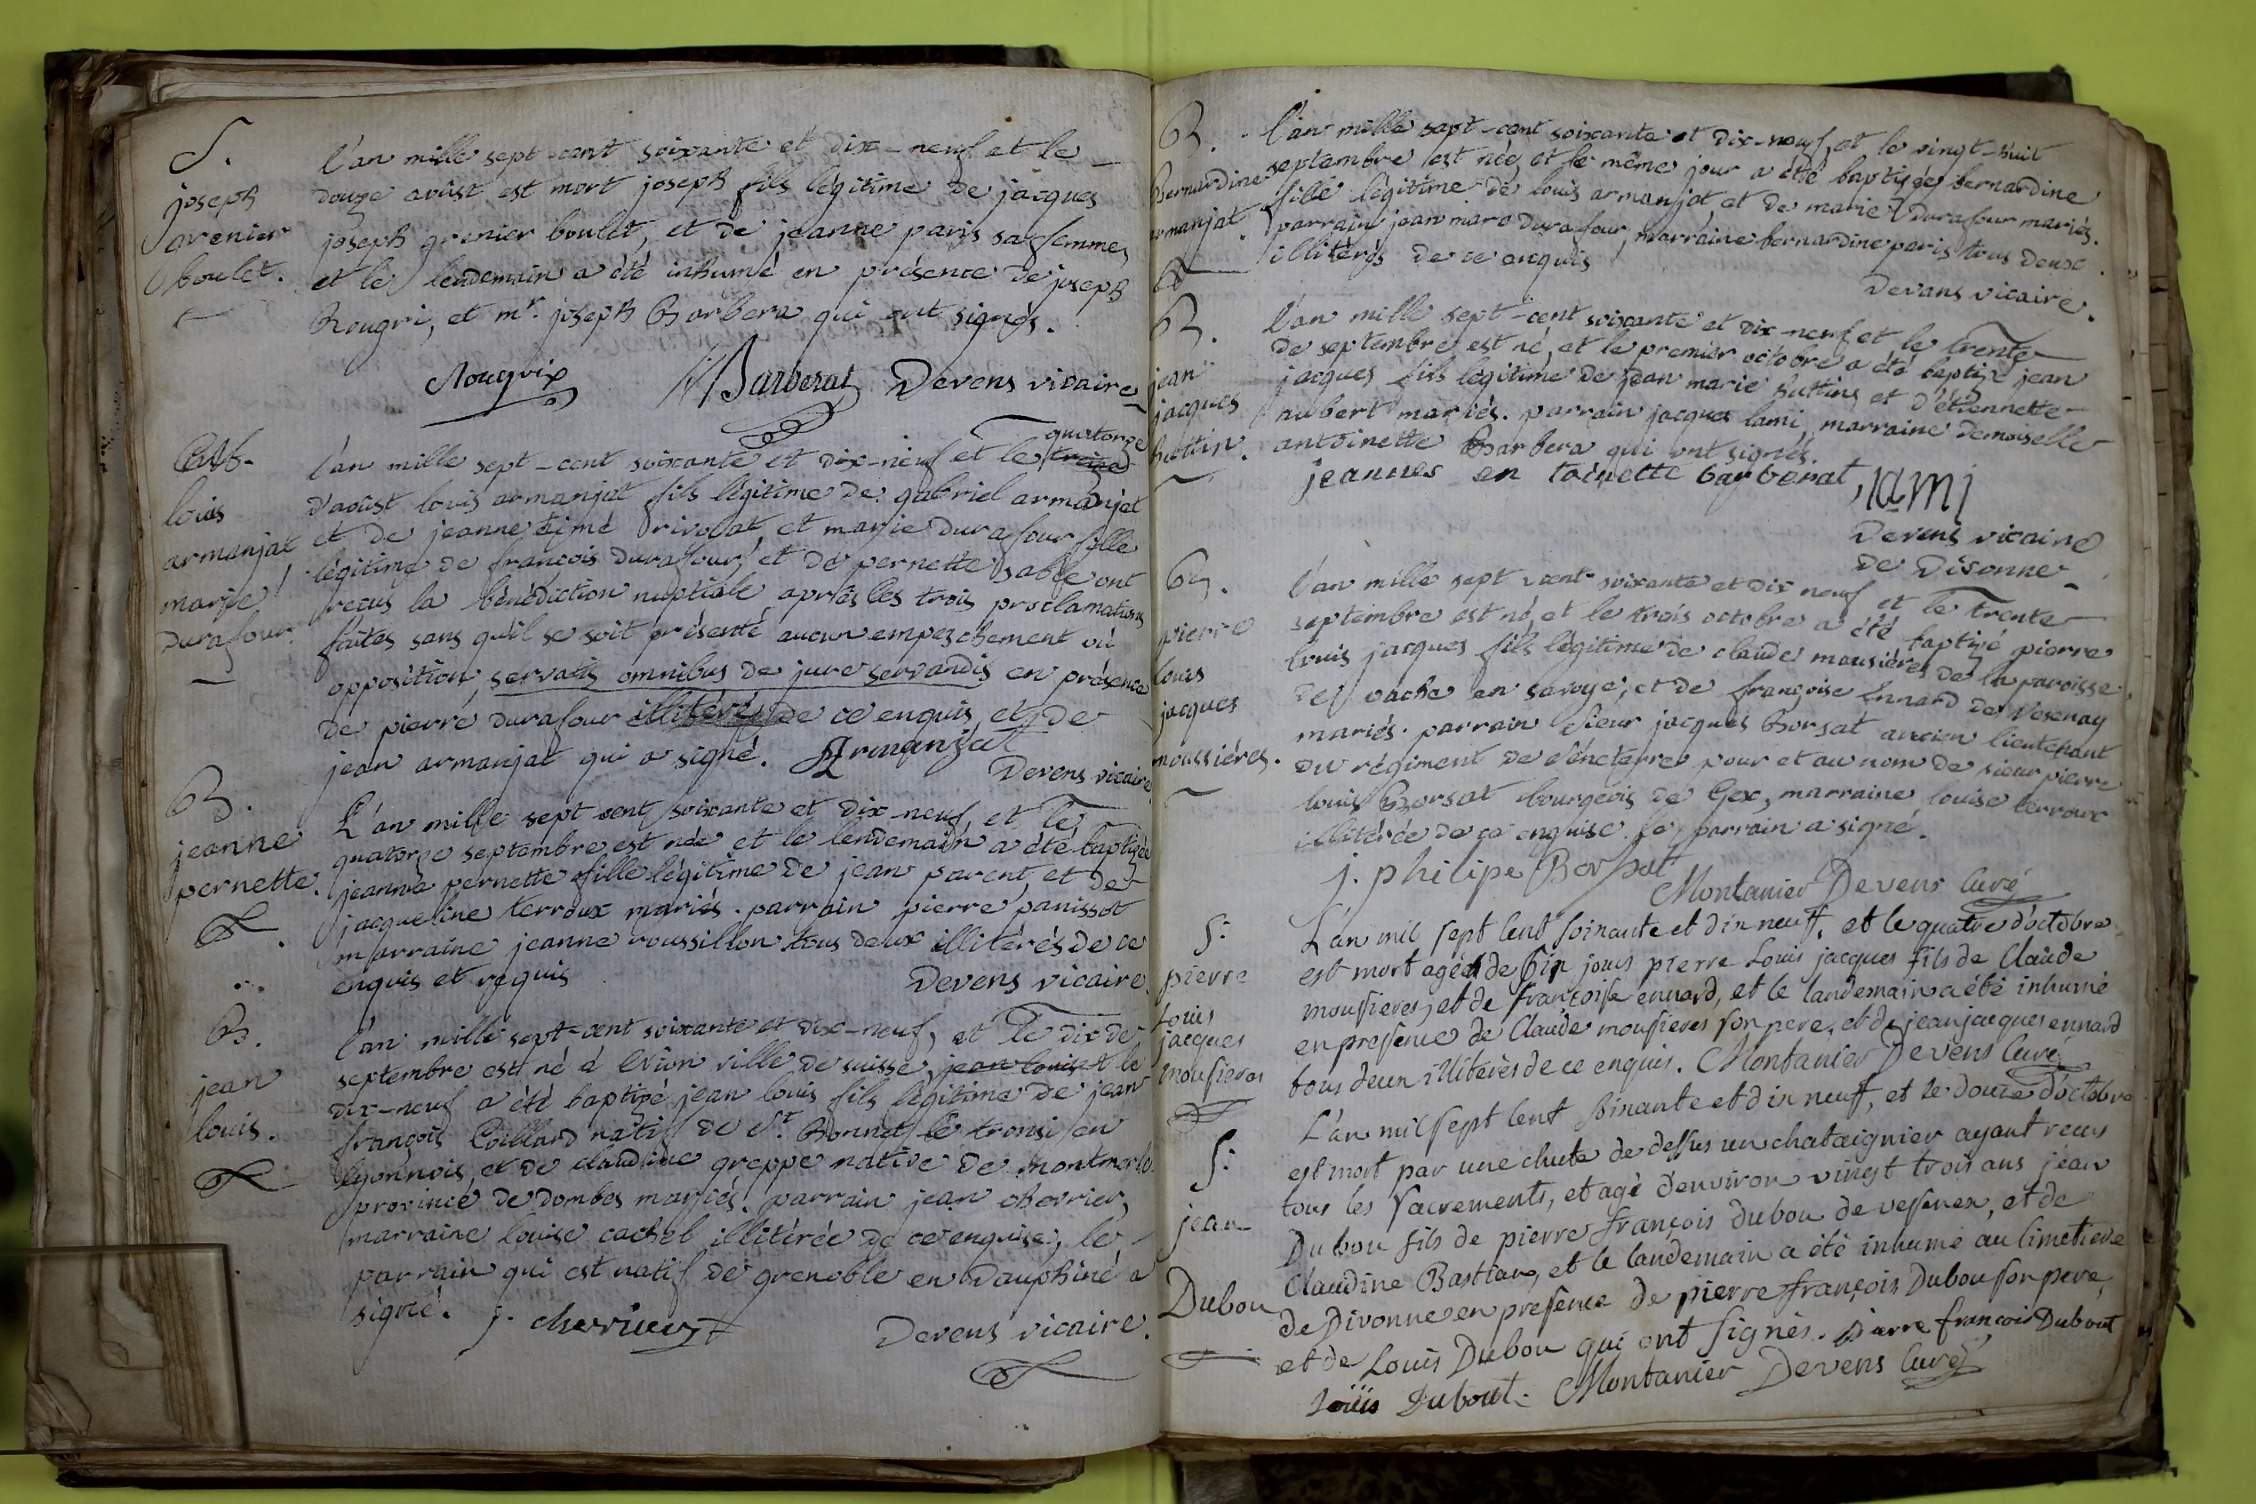 S.
joseph
grenier
boulet.
l'an mille sept-cent soixante et dix-neuf et le
douze aoûst est mort joseph fils légitime de jacques
joseph grenier boulet, et de jeanne paris sa femme,
et le lendemain a été inhumé en présence de joseph
Rougri, et mr. joseph Barbera qui ont signés.
Rougrix Barberat Devens vicaire
louis
armanjat
marie
Durafour.
l'an mille sept-cent soixante et dix-neuf et le treize quatorze
d'aoûst louis armanjat fils légitime de gabriel armanjat
et de jeanne aimé rivolat, et marie durafour fille
légitime de françois durafour, et de pernette sabée ont
recus la bénédiction nuptiale après les trois proclamations
faites sans qu'il se soit présenté aucun empeschement où
opposition, servatis omnibus de jure servandis en présence
de pierre durafour illitéré de ce enquis, et de
jean armanjat qui a signé. Armanjat
Devens vicaire
B.
jeanne
pernette.
L'an mille sept cent soixante et dix-neuf, et le
quatorze septembre est née et le lendemain a été baptizée
jeanne pernette fille légitime de jean parent, et de
jacqueline terroux mariés. parrain pierre panissot
marraine jeanne roussillon tous deux illitérés de ce
enquis et requis Devens vicaire
B.
jean
louis.
l'an mille sept-cent soixante et dix-neuf, et le dix de
septembre est né à Nion ville de suisse, jean louis et le
dix-neuf a été baptizé jean louis fils légitime de jean
françois Coillard natif de St. Bonnet le tronsi en
lyonnois, et de claudine greppe native de montmerle
province de dombes mariés. parrain jean chevrier,
marraine louise cachel illitérée de ce enquise, le
parrain qui est natif de grenoble en Dauphiné a
signé. j. chevrier Devens vicaire.
B.
Bernardine
armanjat.
l'an mille sept-cent soixante et dix-neuf, et le vingt-huit
septembre est née, et le même jour a été baptizée bernardine
fille légitime de louis armanjat et de marie durafour mariés.
parrain jean marc durafour, marraine bernardine paris tous deux
illitérés de ce enquis Devens vicaire.
B.
jean
jacques
huttin.
l'an mille sept-cent soixante et dix-neuf et le trente
de septembre est né, et le premier octobre a été baptizé jean
jacques fils légitime de jean marie huttins, et d'étiennette
aubert mariés. parrain jacques lami, marraine demoiselle
antoinette Barbera qui ont signés.
jeannes en toinette barberat, lami
Devens vicaire
de Divonne
B.
pierre
louis
jacques
moussiéres.
l'an mille sept cent soixante et dix neuf et le trente
septembre est né, et le trois octobre a été baptizé pierre
louis jacques fils légitime de claude mousiéres de la paroisse
de vache en savoye, et de françoise Ennard de Vesenay
mariés. parrain sieur jacques Borsat ancien lieutenant
du régiment de pour et au nom de sieur pierre
louis Borsat bourgeois de Gex, marraine louise terroux
illitérée de ce enquise. le parrain a signé.
j. philipe Borsat
Montanier Devens Curé
S:
pierre
Louis
jacques
mousieres
L'an mil sept cent soixante et dix neuff, et le quatre d'octobre
est mort agé de six jours pierre Louis jacques fils de Claude
mousieres, et de Françoise ennard, et le landemain a été inhumé
en presence de Claude mousieres son pere, et de jean jacques ennard
tous deux illiterés de ce enquis. Montanier Devens Curé
S:
jean
Dubou
L'an mil sept cent soixante et dix neuff, et le douze d'octobre
est mort par une chute de dessus un chataignier ayant recus
tous les sacrements, et agé d'environ vingt trois ans jean
Dubou fils de pierre françois Dubou de vesenex, et de
Claudine Bastian, et le landemain a été inhumé au Cimetiere
de Divonne en presence de pierre françois Dubou son pere,
et de Louis Dubou qui ont signés. Pierre francois Dubout
Louis Dubout. Montanier Devens Curé